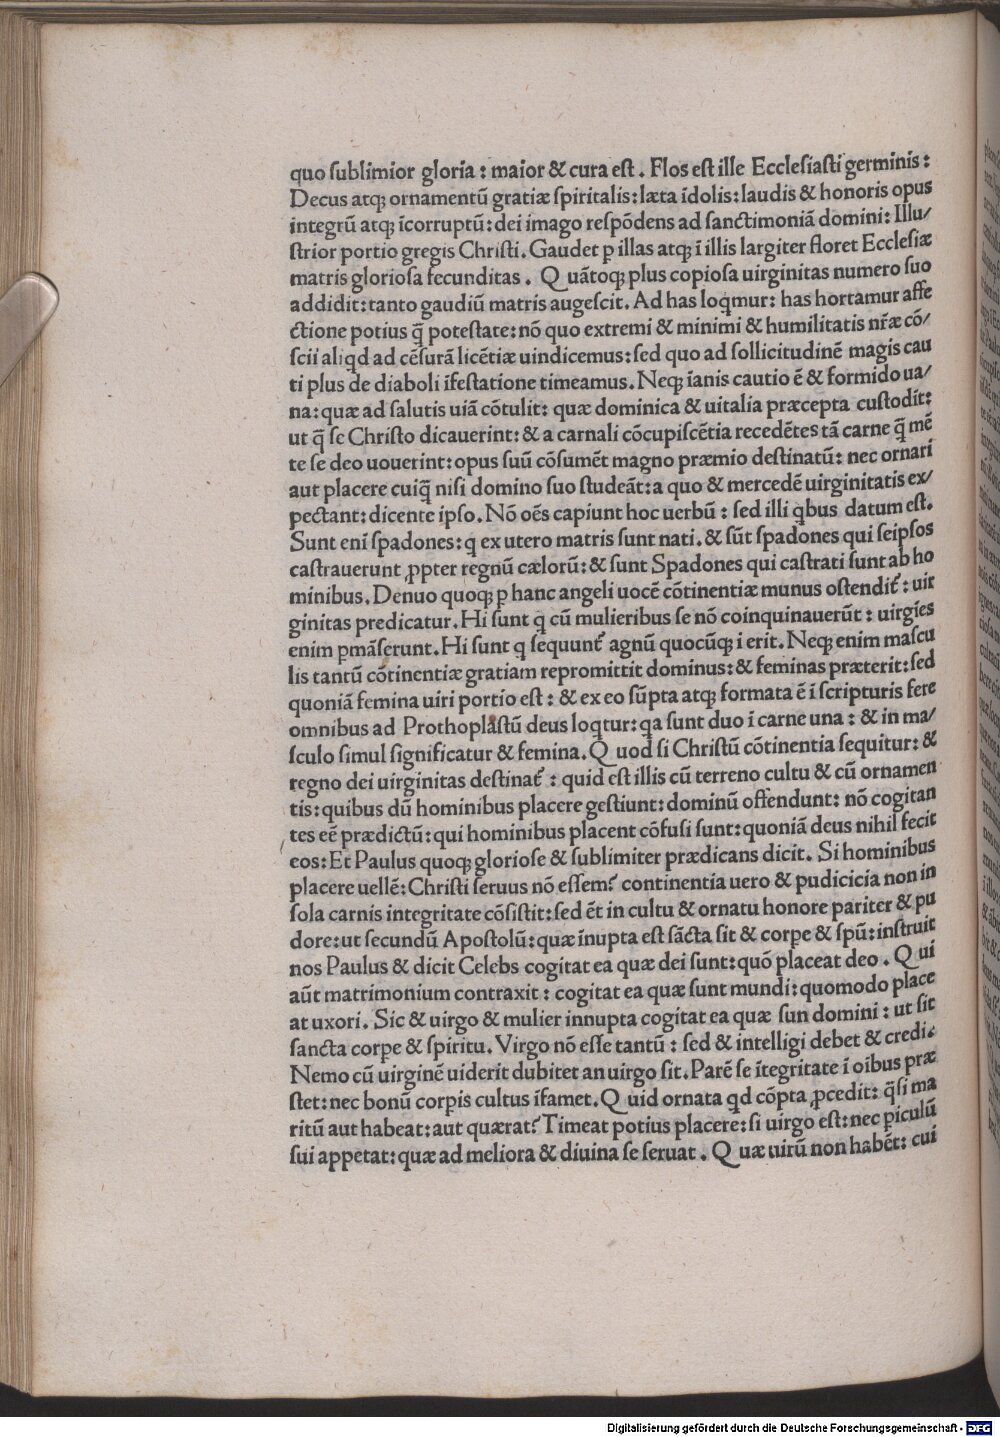 quo ſublimior gloria : maior & cura eſt . Flos eſt ille Eccleſiaſti germinis :
Decus atqꝫ ornamentū gratiæ ſpiritalis : læta īdolis : laudis & honoris opus
integrū atqꝫ īcorruptū : dei imago reſpōdens ad ſanctimoniā domini : Illu/
ſtrior portio gregis Chriſti . Gaudet ꝑ illas atqꝫ ī illis largiter floret Eccleſiæ
matris glorioſa fecunditas . Quātoqꝫ plus copioſa uirginitas numero ſuo
addidit : tanto gaudiū matris augeſcit . Ad has loqmur : has hortamur affe
ctione potius q̄ poteſtate : nō quo extremi & minimi & humilitatis nr̄æ cō/
ſcii aliqd ad cēſurā licētiæ uindicemus : ſed quo ad ſollicitudinē magis cau
ti plus de diaboli īfeſtatione timeamus . Neqꝫ īanis cautio ē & formido ua/
na : quæ ad ſalutis uiā cōtulit : quæ dominica & uitalia præcepta cuſtodit :
ut q̄ ſe Chriſto dicauerint : & a carnali cōcupiſcētia recedētes tā carne q̄ mē
te ſe deo uouerint : opus ſuū cōſumēt magno præmio deſtinatū : nec ornari
aut placere cuiq̄ niſi domino ſuo ſtudeāt : a quo & mercedē uirginitatis ex/
pectant : dicente ipſo . Nō oēs capiunt hoc uerbū : ſed illi qbus datum eſt .
Sunt enī ſpadones : q ex utero matris ſunt nati . & ſūt ſpadones qui ſeipſos
caſtrauerunt ꝓpter regnū cælorū : & ſunt Spadones qui caſtrati ſunt ab ho
minibus . Denuo quoqꝫ ꝑ hanc angeli uocē cōtinentiæ munus oſtendit᷑ : uir
ginitas predicatur . Hi ſunt q cū mulieribus ſe nō coinquinauerūt : uirgīes
enim ꝑmāſerunt . Hi ſunt q ſequunt᷑ agnū quocūqꝫ i erit . Neqꝫ enim maſcu
lis tantū cōtinentiæ gratiam repromittit dominus : & feminas præterit : ſed
quoniā femina uiri portio eſt : & ex eo ſūpta atqꝫ formata ē ī ſcripturis fere
omnibus ad Prothoplaſtū deus loqtur : qa ſunt duo ī carne una : & in ma/
ſculo ſimul ſignificatur & femina . Quod ſi Chriſtū cōtinentia ſequitur : &
regno dei uirginitas deſtinat᷑ : quid eſt illis cū terreno cultu & cū ornamen
tis : quibus dū hominibus placere geſtiunt : dominū offendunt : nō cogitan
tes eē prædictū : qui hominibus placent cōfuſi ſunt : quoniā deus nihil fecit
eos : Et Paulus quoqꝫ glorioſe & ſublimiter prædicans dicit . Si hominibus
placere uellē : Chriſti ſeruus nō eſſem ? continentia uero & pudicicia non in
ſola carnis integritate cōſiſtit : ſed ēt in cultu & ornatu honore pariter & pu
dore : ut ſecundū Apoſtolū : quæ īnupta eſt ſācta ſit & corꝑe & ſpū : inſtruit
nos Paulus & dicit Celebs cogitat ea quæ dei ſunt : quō placeat deo . Qui
aūt matrimonium contraxit : cogitat ea quæ ſunt mundi : quomodo place
at uxori . Sic & uirgo & mulier innupta cogitat ea quæ ſun domini : ut ſit
ſancta corꝑe & ſpiritu . Virgo nō eſſe tantū : ſed & intelligi debet & credi .
Nemo cū uirginē uiderit dubitet an uirgo ſit . Parē ſe ītegritate ī oibus præ
ſtet : nec bonū corꝑis cultus īfamet . Quid ornata qd cōpta ꝓcedit : q̄ſi ma
ritū aut habeat : aut quærat ? Timeat potius placere : ſi uirgo eſt : nec ꝑiculū
ſui appetat : quæ ad meliora & diuina ſe ſeruat . Quæ uirū non habēt : cui
Digitalisierung gefördert durch die Deutsche Forschungsgemeinschaft - DFG